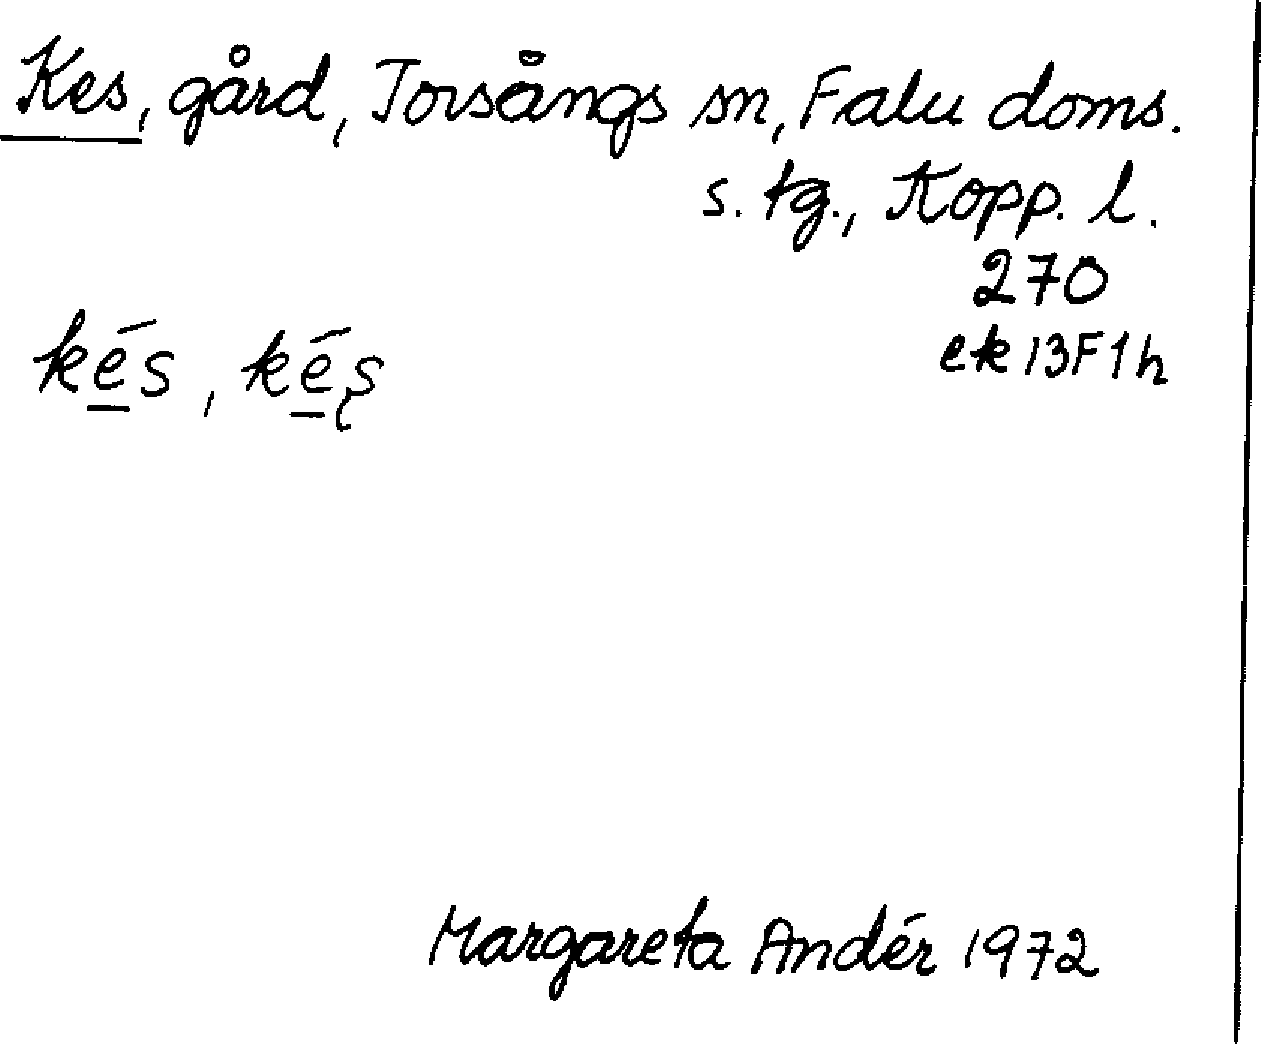 Kes, gård, Torsångs sn, Falu doms.
s. tg., Kopp. l.
270
ek 13F1h
ké̱s, ké̱ʂ
Margareta Andér 1972